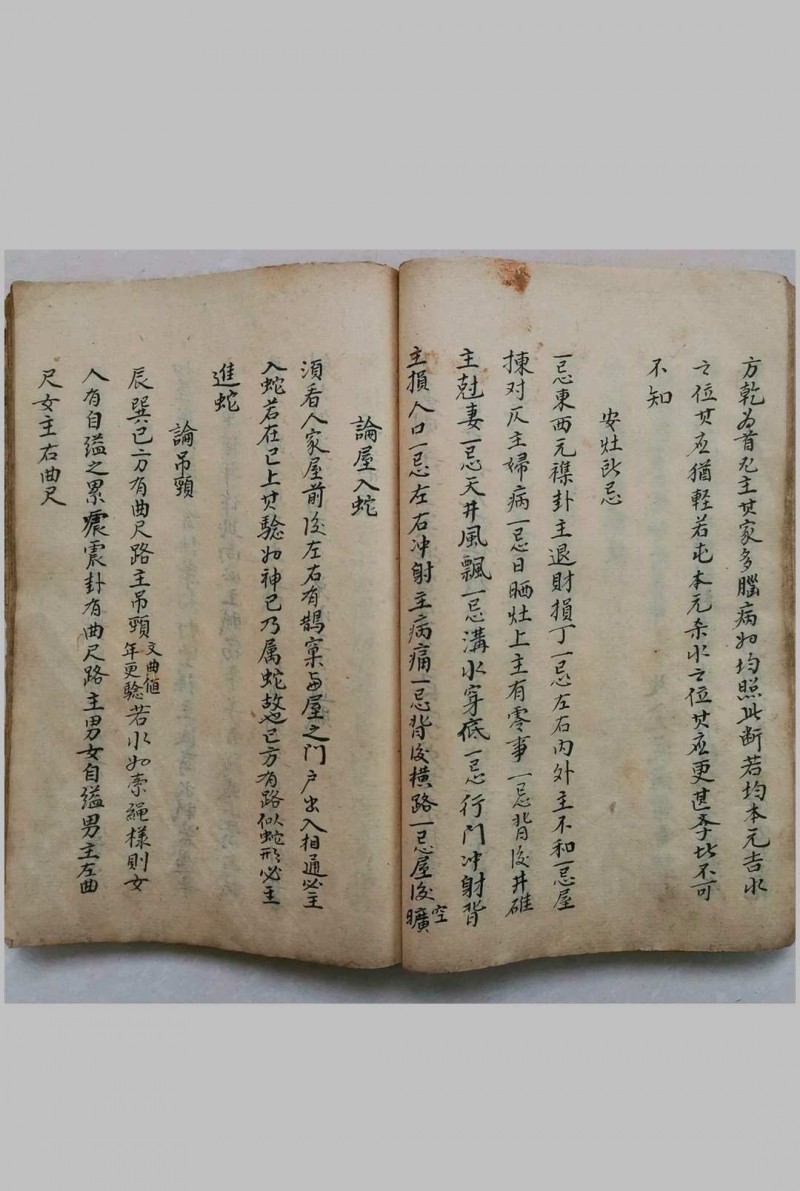 方乾為首凡主其家多腦病如均照此断若均本元吉水
之位其应猶軽若屯本元杀水之位其应更甚季此不可
不知
安灶所忌
一忌東西元襍卦主退財損丁一忌左右内外主不和一忌屋
揀对仄主婦病一忌日晒灶上主有零事一忌背後井碓
主尅妻一忌天井風飄一忌溝水穿底一忌行門冲射背
主損人口一忌左右冲射主病痛一忌背後橫路一忌屋後曠空
論屋入蛇
須看人家屋前後左右有鵲窠與屋之门户出入相通必主
入蛇若在巳上其驗如神巳乃属蛇故也巳方有路似蛇形必主
進蛇
論吊頸
辰巽巳方有曲尺路主吊頸文曲値年更驗若水如索繩樣則女
人有自縊之累震卦有曲尺路主男女自縊男主左曲
尺女主右曲尺